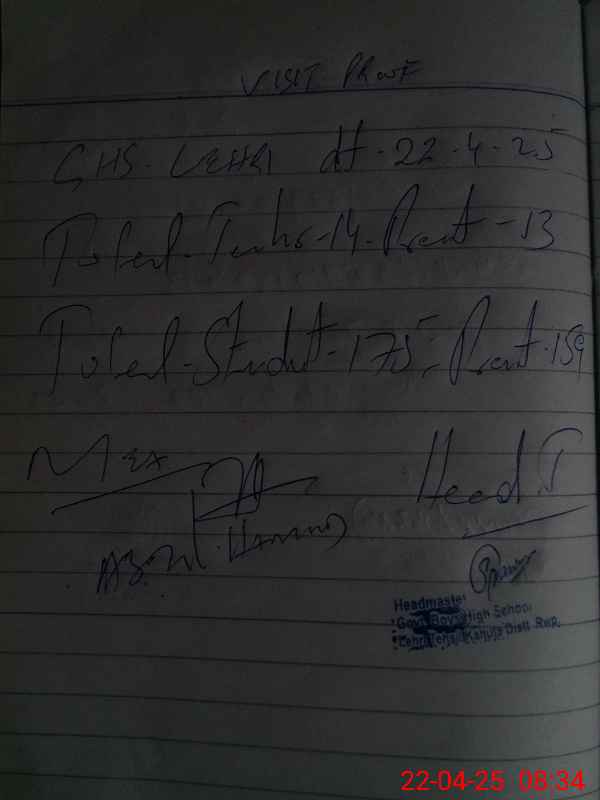 VISIT PROOF
GHS. LEHRI dt. 22.4.25
Total-Teachs-14. Prent-13
Total-Studnt-175, Prent.159
Head.T
Abdul.
Headmaster
Govt. Boys High School
Lehri Teh: Kahuta Distt. RWP.
22-04-25 08:34